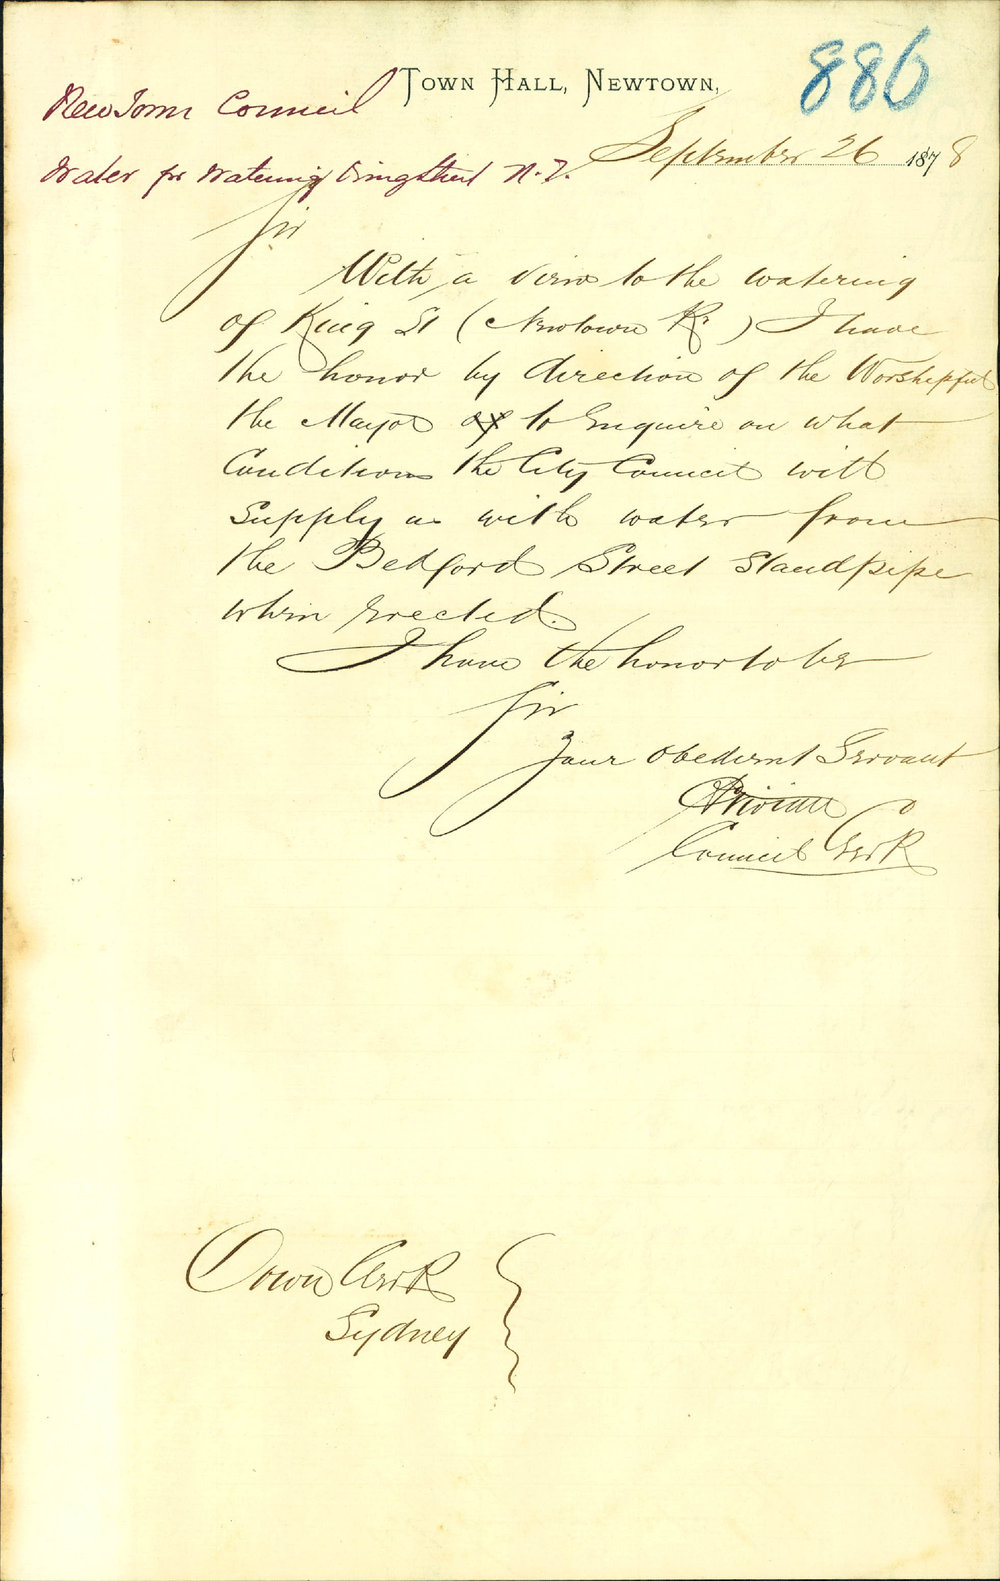 886
TOWN HALL, NEWTOWN,
Newtown Council
September 26 1878
Water for Watering Kingstreet N.T.
Sir
With a view to the watering
of King St (Newtown Rd) I have
the honor by direction of the Worshipful
the Mayor of to Enquire on what
Conditions the City Council will
Supply us with water from
the Bedford Street Standpipe
when Erected.
I have the honor to be
Sir
Your obedient Servant
Council Clerk
Town Clerk
Sydney